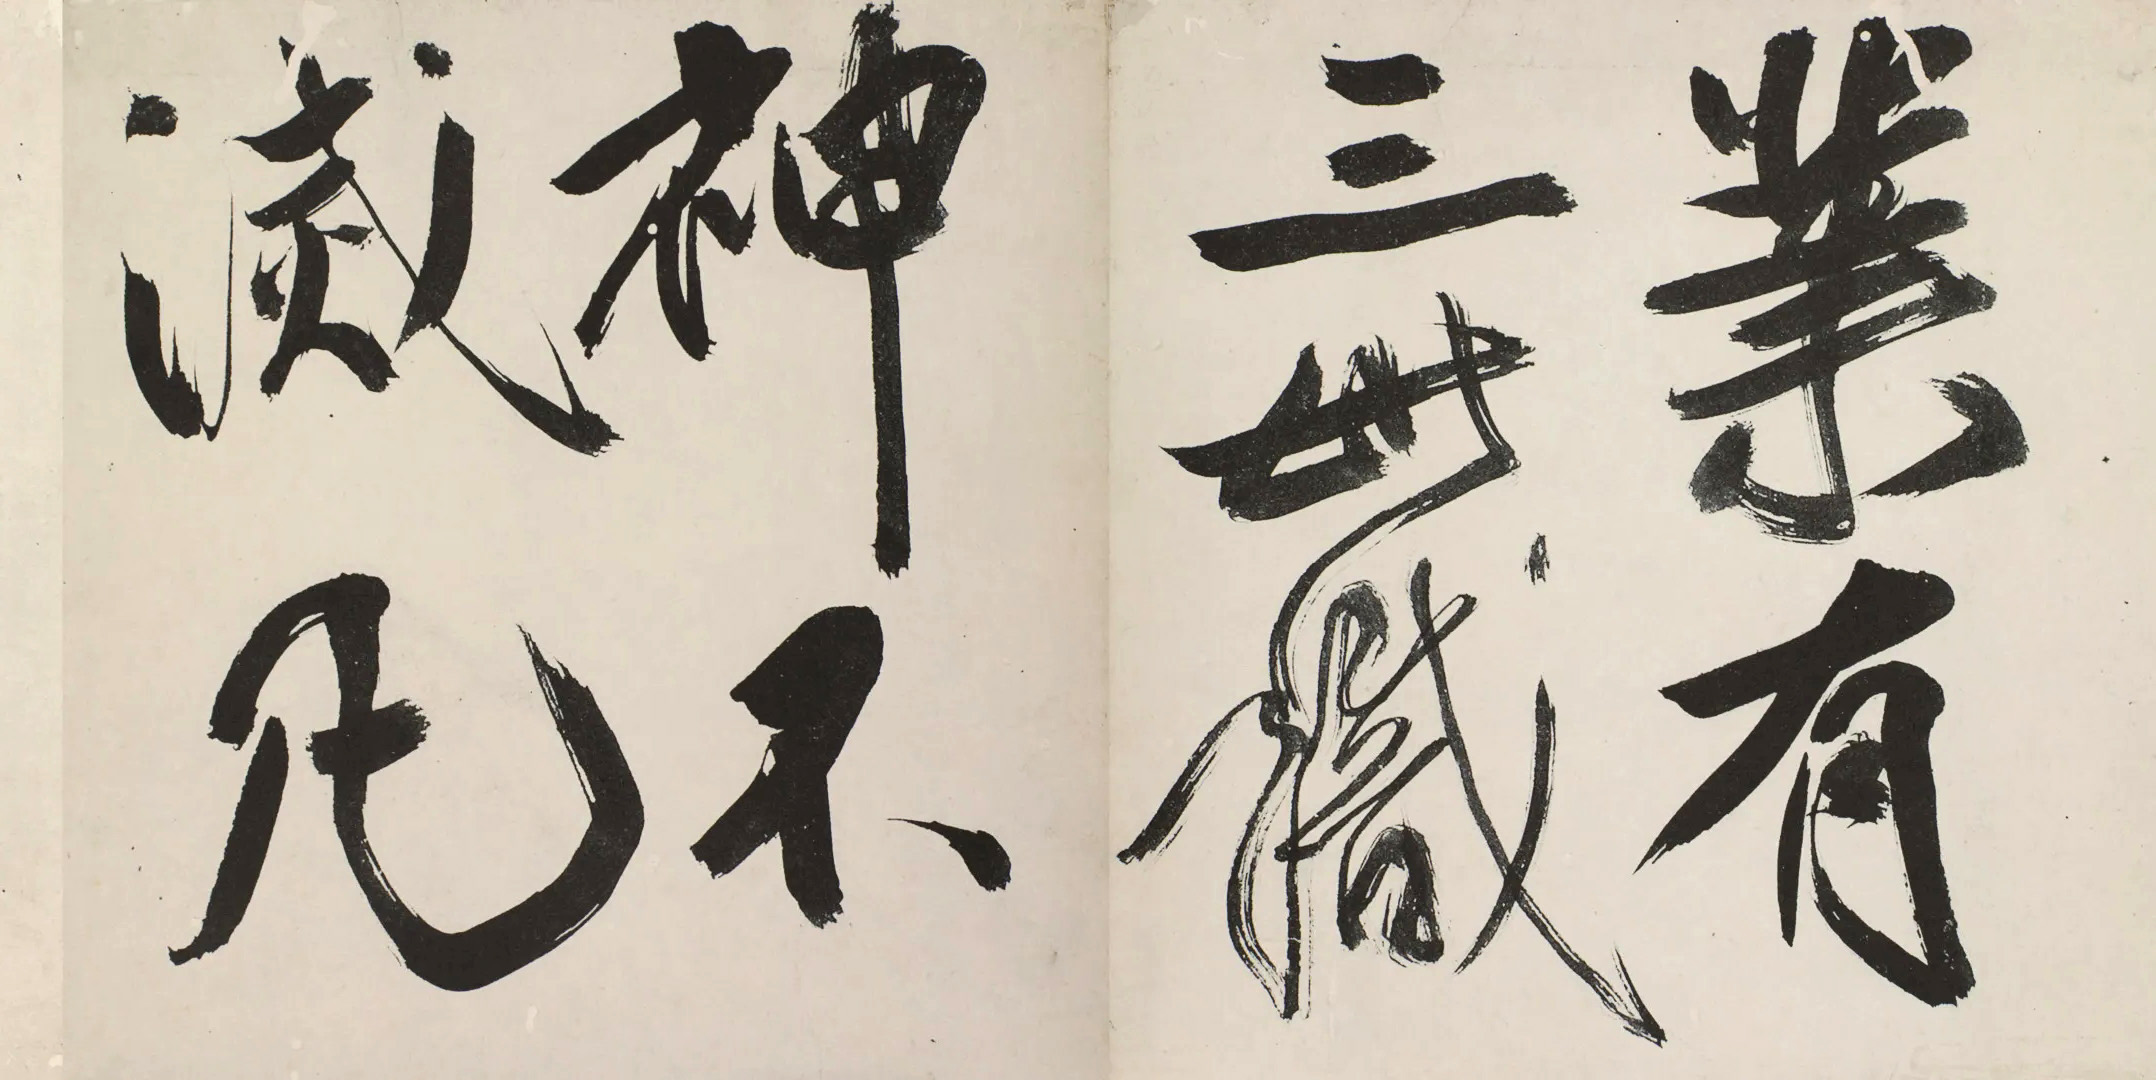 業有
三世識
神不
滅凡